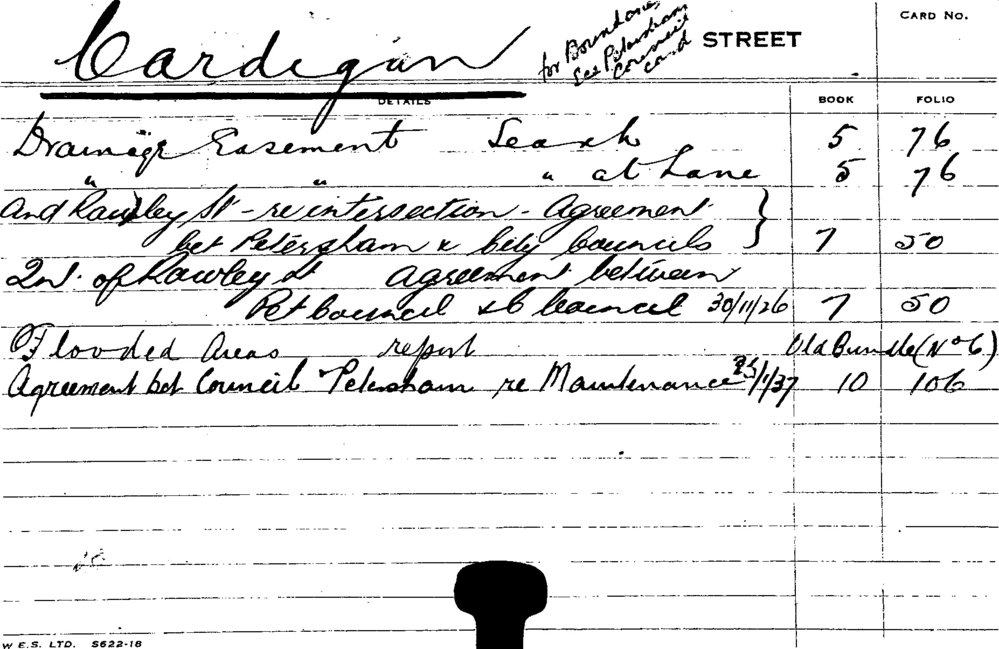 Cardigan STREET
for Boundaries
See Petersham
Council
card
CARD NO.
DETAILS BOOK FOLIO
Drainage Easement Search 5 76
" " " at Lane 5 76
And Rawley St - re intersection - Agreement
bet Petersham & City Councils } 7 50
Int. of Rawley St agreement between
Pet Council & C Council 30/11/26 7 50
Flooded Areas report Old Bundle (No 6)
Agreement bet Council Petersham re Maintenance /1/37 10 106
W E.S. LTD. S622-18